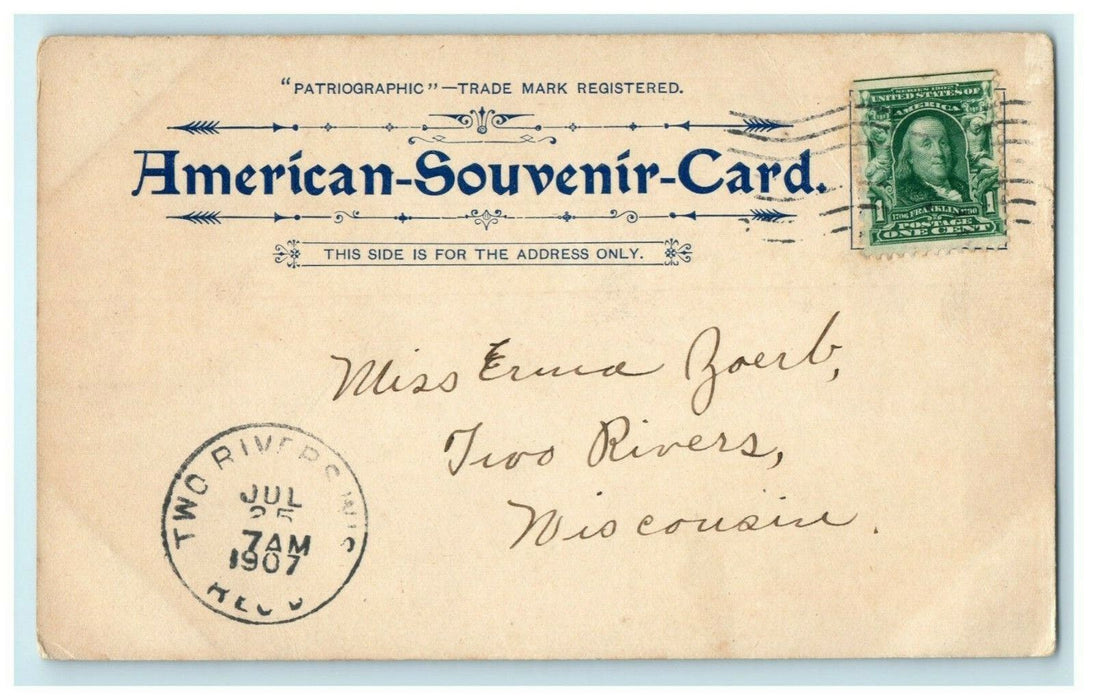 "PATRIOGRAPHIC"—TRADE MARK REGISTERED.
American-Souvenir-Card.
THIS SIDE IS FOR THE ADDRESS ONLY.
SERIES 1902
UNITED STATES OF
AMERICA
1706 FRANKLIN 1790
POSTAGE
1 ONE CENT 1
Miss Erma Zoerb,
Two Rivers,
Wisconsin.
TWO RIVERS WIS
JUL
25
7 AM
1907
REC'D